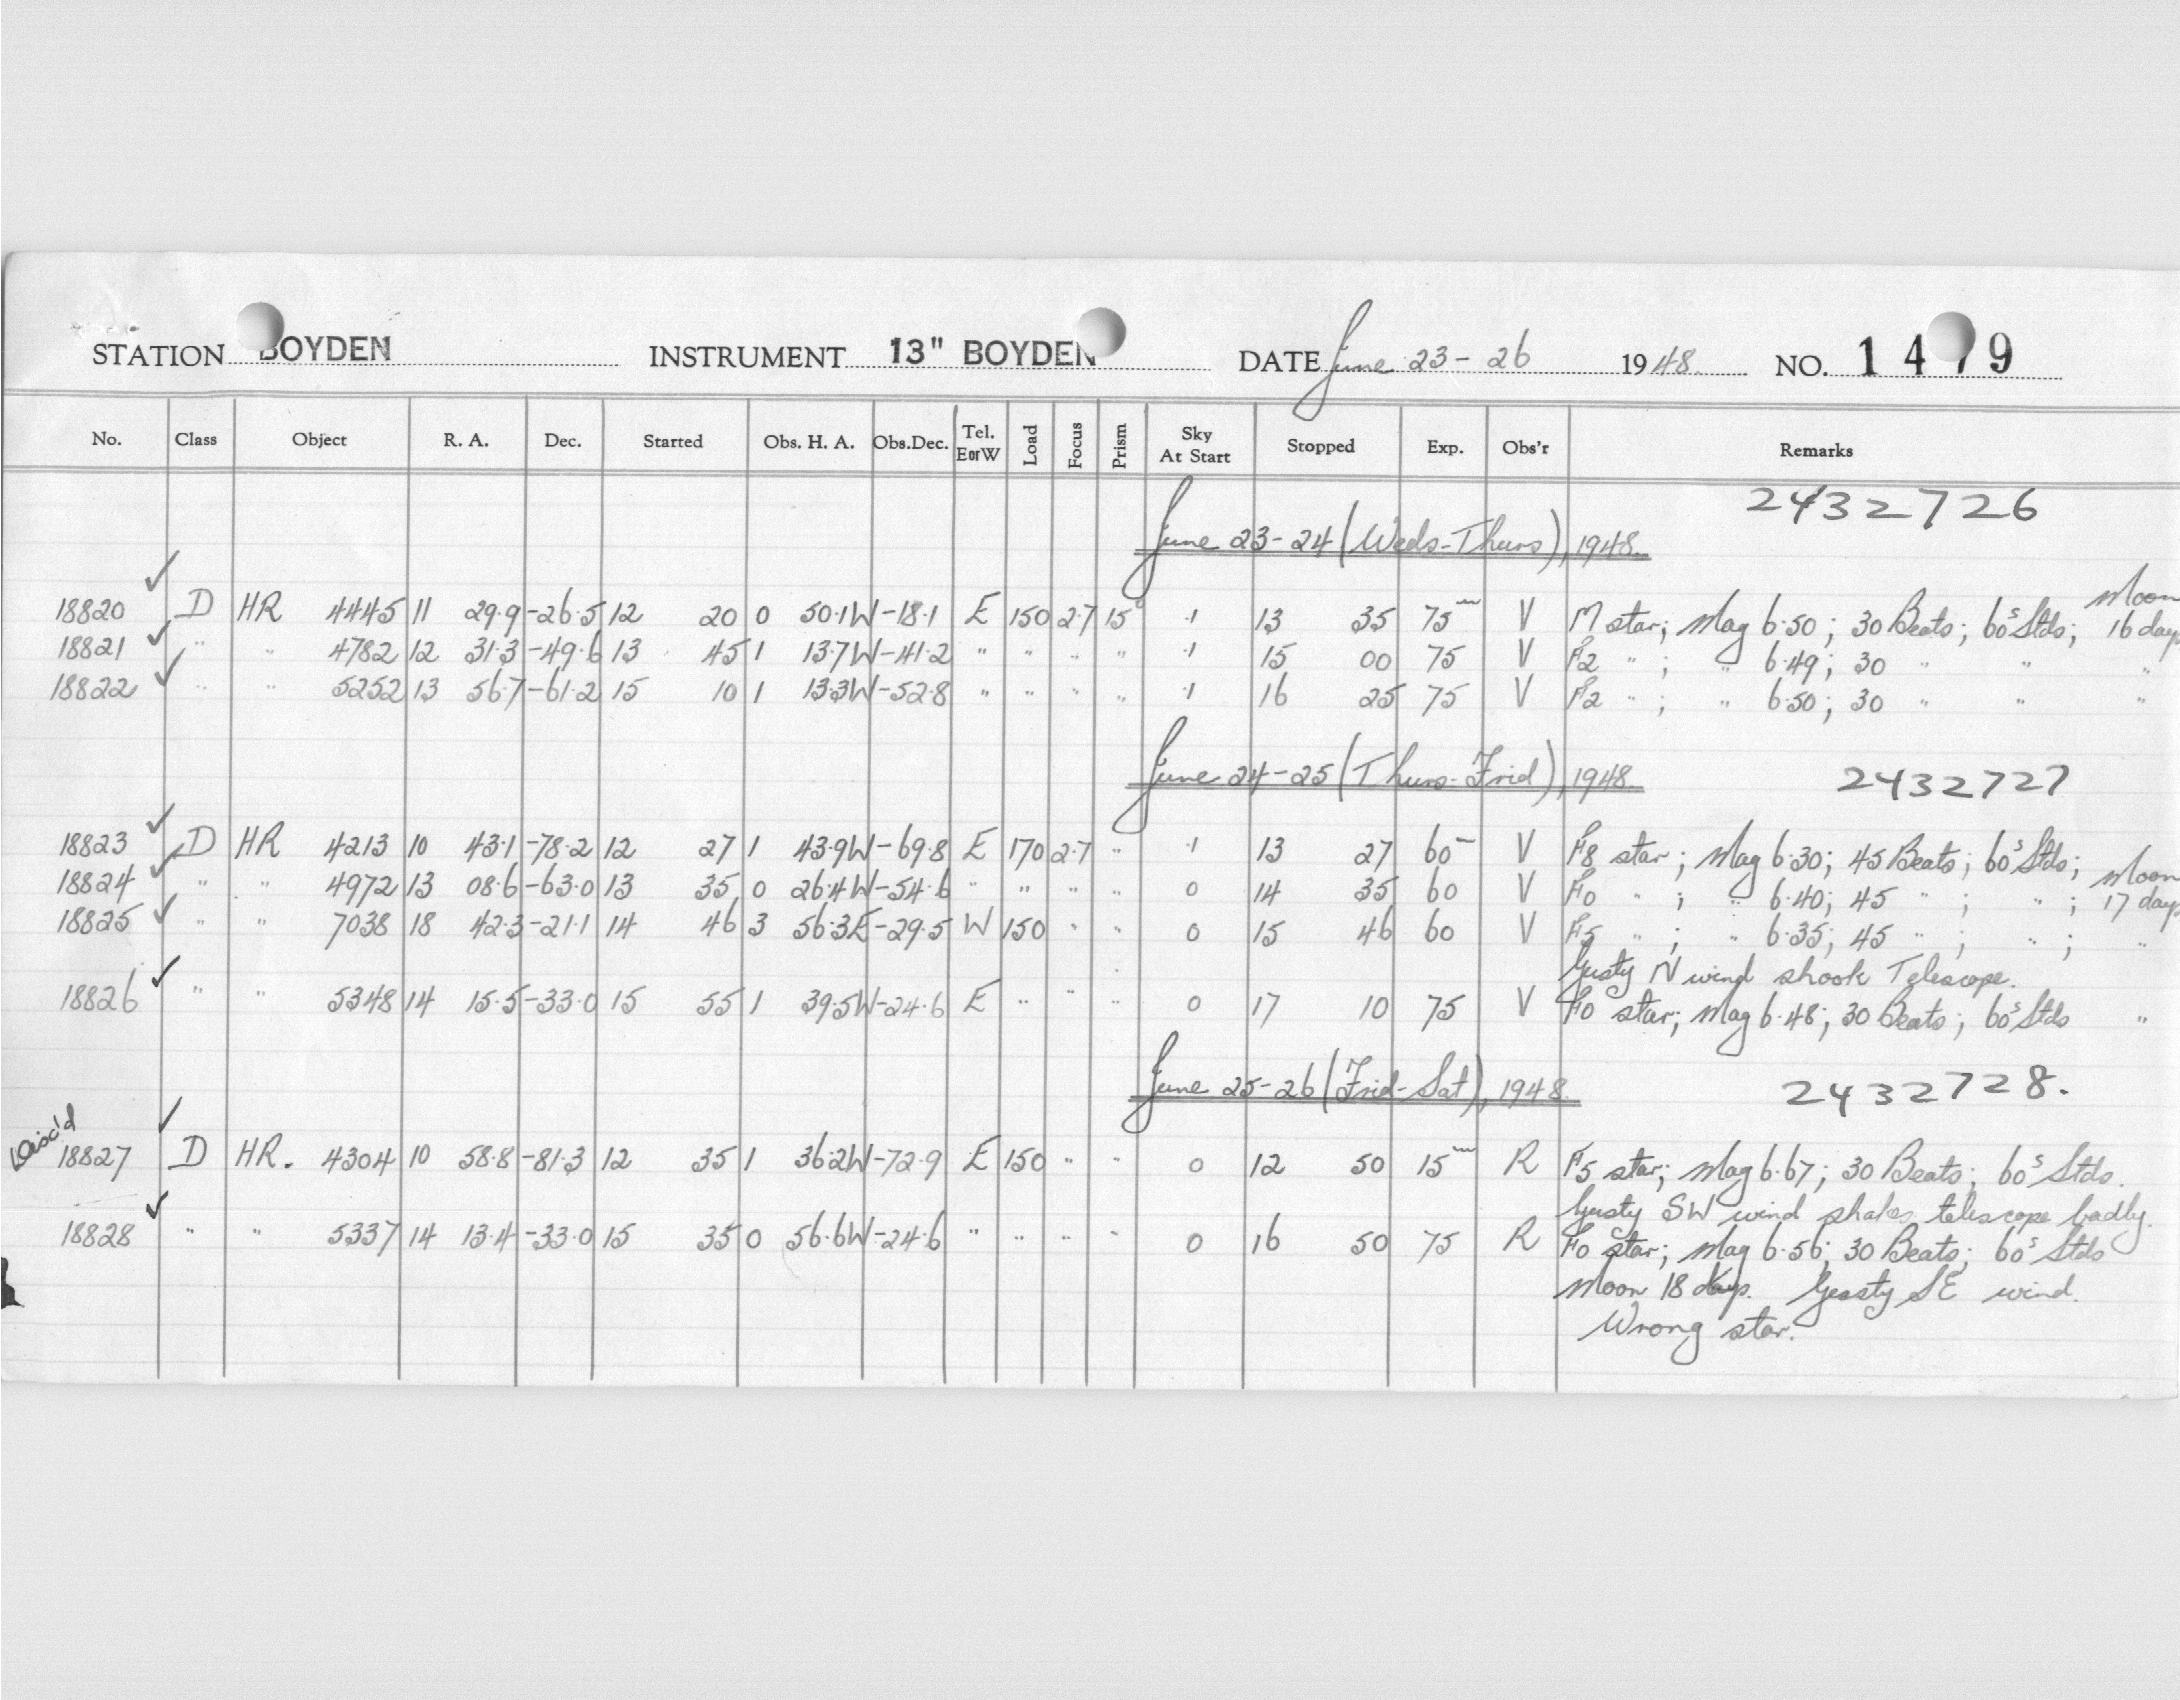 STATION BOYDEN INSTRUMENT 13" BOYDEN DATE June 23-26 1948. NO. 1479
No. Class Object R. A. Dec. Started Obs. H. A. Obs.Dec. Tel. EorW Load Focus Prism Sky At Start Stopped Exp. Obs'r Remarks
2432726
June 23-24 (Weds-Thurs), 1948.
18820 ✓ D HR 4445 11 29.9 -26.5 12 20 0 50.1W -18.1 E 150 2.7 15° .1 13 35 75m V M star; Mag 6.50; 30 Beats; 60s Stds; Moon 16 days
18821 ✓ " " 4782 12 31.3 -49.6 13 45 1 13.7W -41.2 " " " " .1 15 00 75 V F2 " ; " 6.49; 30 " " "
18822 ✓ " " 5252 13 56.7 -61.2 15 10 1 13.3W -52.8 " " " " .1 16 25 75 V F2 " ; " 6.50; 30 " " "
June 24-25 (Thurs-Frid), 1948. 2432727
18823 ✓ D HR 4213 10 43.1 -78.2 12 27 1 43.9W -69.8 E 170 2.7 " .1 13 27 60m V F8 star; Mag 6.30; 45 Beats; 60s Stds; Moon
18824 ✓ " " 4972 13 08.6 -63.0 13 35 0 26.4W -54.6 " " " " 0 14 35 60 V F0 " ; " 6.40; 45 " ; " ; 17 days
18825 ✓ " " 7038 18 42.3 -21.1 14 46 3 56.3E -29.5 W 150 " " 0 15 46 60 V F5 " ; " 6.35; 45 " ; " ; "
Gusty N wind shook Telescope.
18826 ✓ " " 5348 14 15.5 -33.0 15 55 1 39.5W -24.6 E " " " 0 17 10 75 V F0 star; Mag 6.48; 30 Beats; 60s Stds "
June 25-26 (Frid-Sat), 1948. 2432728.
Disc'd
18827 ✓ D HR. 4304 10 58.8 -81.3 12 35 1 36.2W -72.9 E 150 " " 0 12 50 15m R F5 star; Mag 6.67; 30 Beats; 60s Stds.
Gusty SW wind shakes telescope badly.
18828 ✓ " " 5337 14 13.4 -33.0 15 35 0 56.6W -24.6 " " " " 0 16 50 75 R F0 star; Mag 6.56; 30 Beats; 60s Stds
Moon 18 days. Gusty SE wind.
Wrong star.